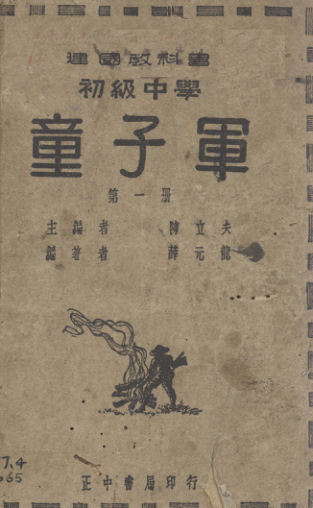 建國教科書
初級中學
童子軍
第一册
主編者 陳立夫
編著者 薛元龍
7.4
065
正中書局印行